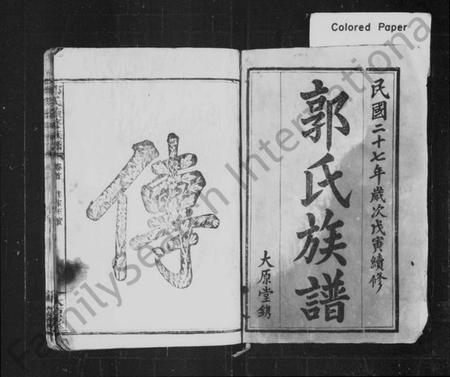 Colored Paper
民國二十七年歲次戊寅續修
郭氏族譜
大原堂鐫
傳
FamilySearch International